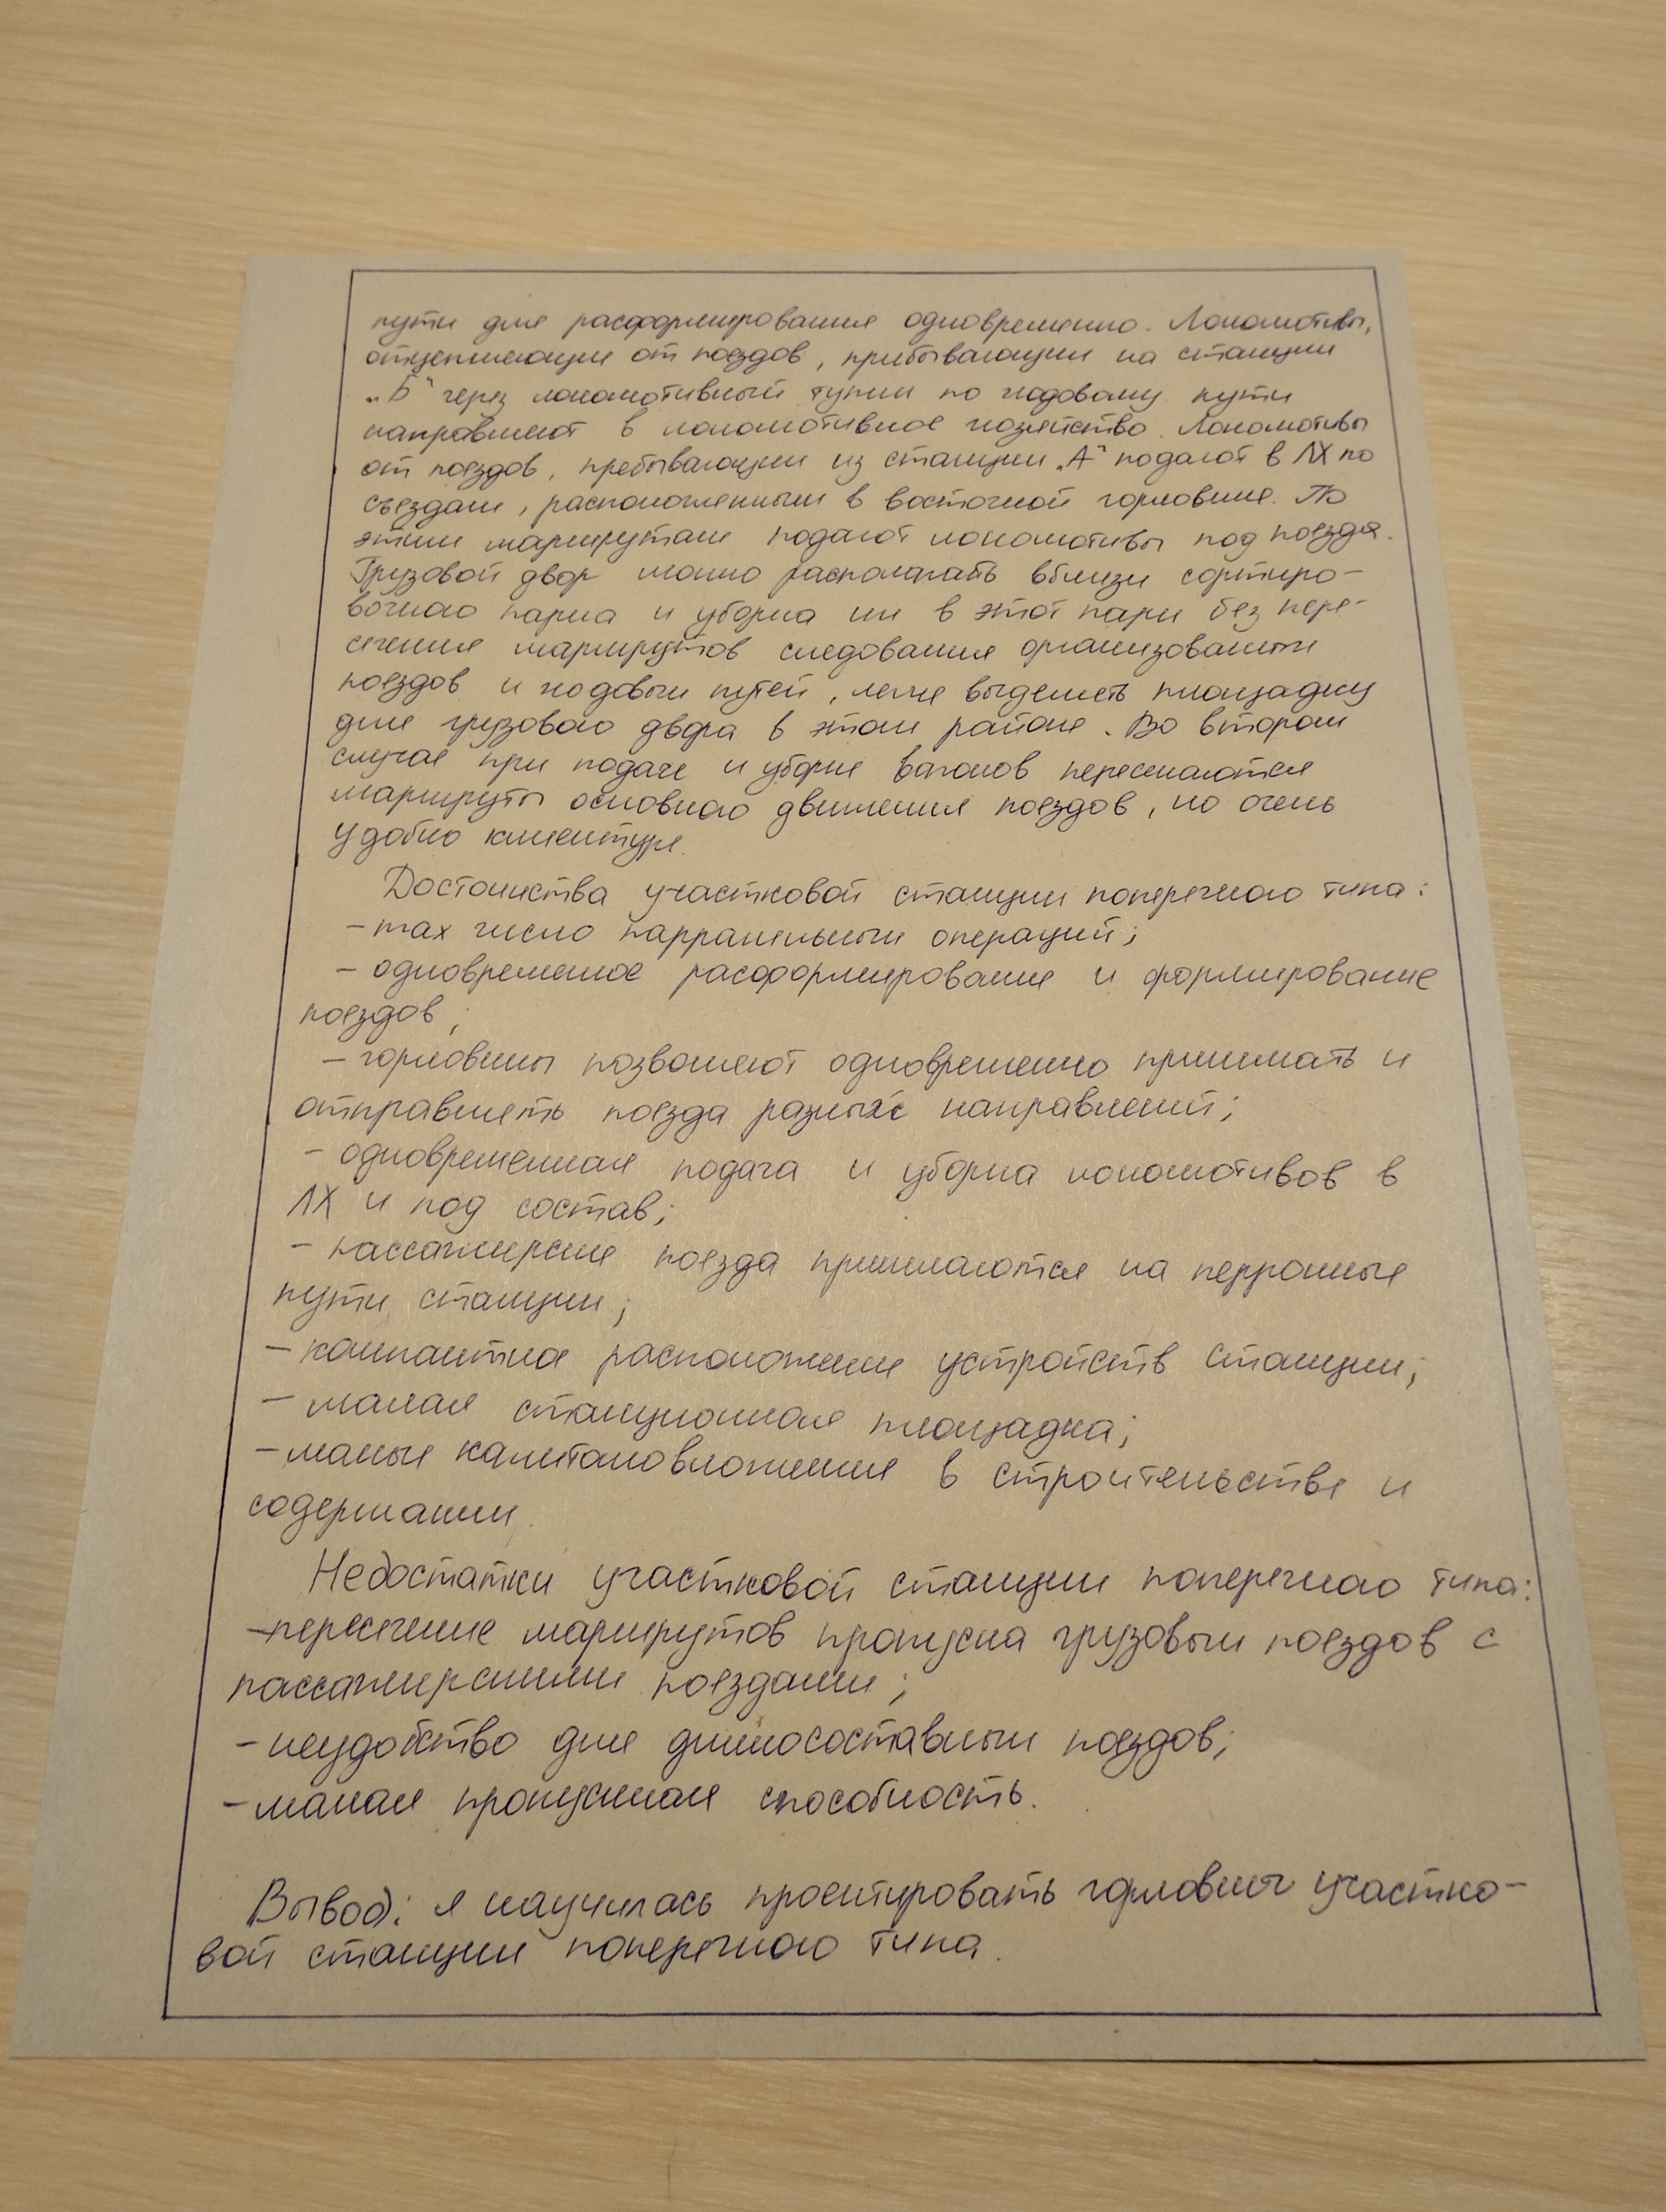 пути для расформирования одновременно. Локомотивы,
отцепляющие от поездов, прибывающих на станции
„Б“ через локомотивный тупик по ходовому пути
направляют в локомотивное хозяйство. Локомотивы
от поездов, пребывающих из станции „А“ подают в ЛХ по
съездам, расположенным в восточной горловине. По
этим маршрутам подают локомотивы под поезда.
Грузовой двор можно располагать вблизи сортиро-
вочного парка и уборка их в этот парк без пере-
сечения маршрутов следования организованных
поездов и ходовых путей, легче выделить площадку
для грузового двора в этом районе. Во втором
случае при подаче и уборке вагонов пересекаются
маршруты основного движения поездов, но очень
удобно клиентуре.
Достоинства участковой станции поперечного типа:
- max число парралельных операций;
- одновременное расформирование и формирование
поездов;
- горловины позволяют одновременно принимать и
отправлять поезда разных направлений;
- одновременная подача и уборка локомотивов в
ЛХ и под состав;
- пассажирские поезда принимаются на перронные
пути станции;
- компактное расположение устройств станции;
- малая станционная площадка;
- малые капиталовложения в строительстве и
содержании.
Недостатки участковой станции поперечного типа:
- пересечение маршрутов пропуска грузовых поездов с
пассажирскими поездами;
- неудобство для длинносоставных поездов;
- малая пропускная способность.
Вывод: я научилась проектировать горловину участко-
вой станции поперечного типа.